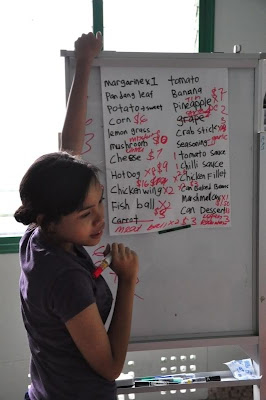 margarine x1
Pandang leaf
Potato + sweet
Corn $6
lemon grass
mushroom
Cheese $7
Hot Dog x $9
Chicken wing x2
Fish ball x2
$8
Carrot
meat ball x2 $3
tomato
Banana $7
Pineapple x1
grape 2
Crab stick
Seasoning
1 Tomato Sauce
1 Chilli Sauce
Chicken Fillet
Can Baked Beans
Marshmallow x1
Can Dessert
3